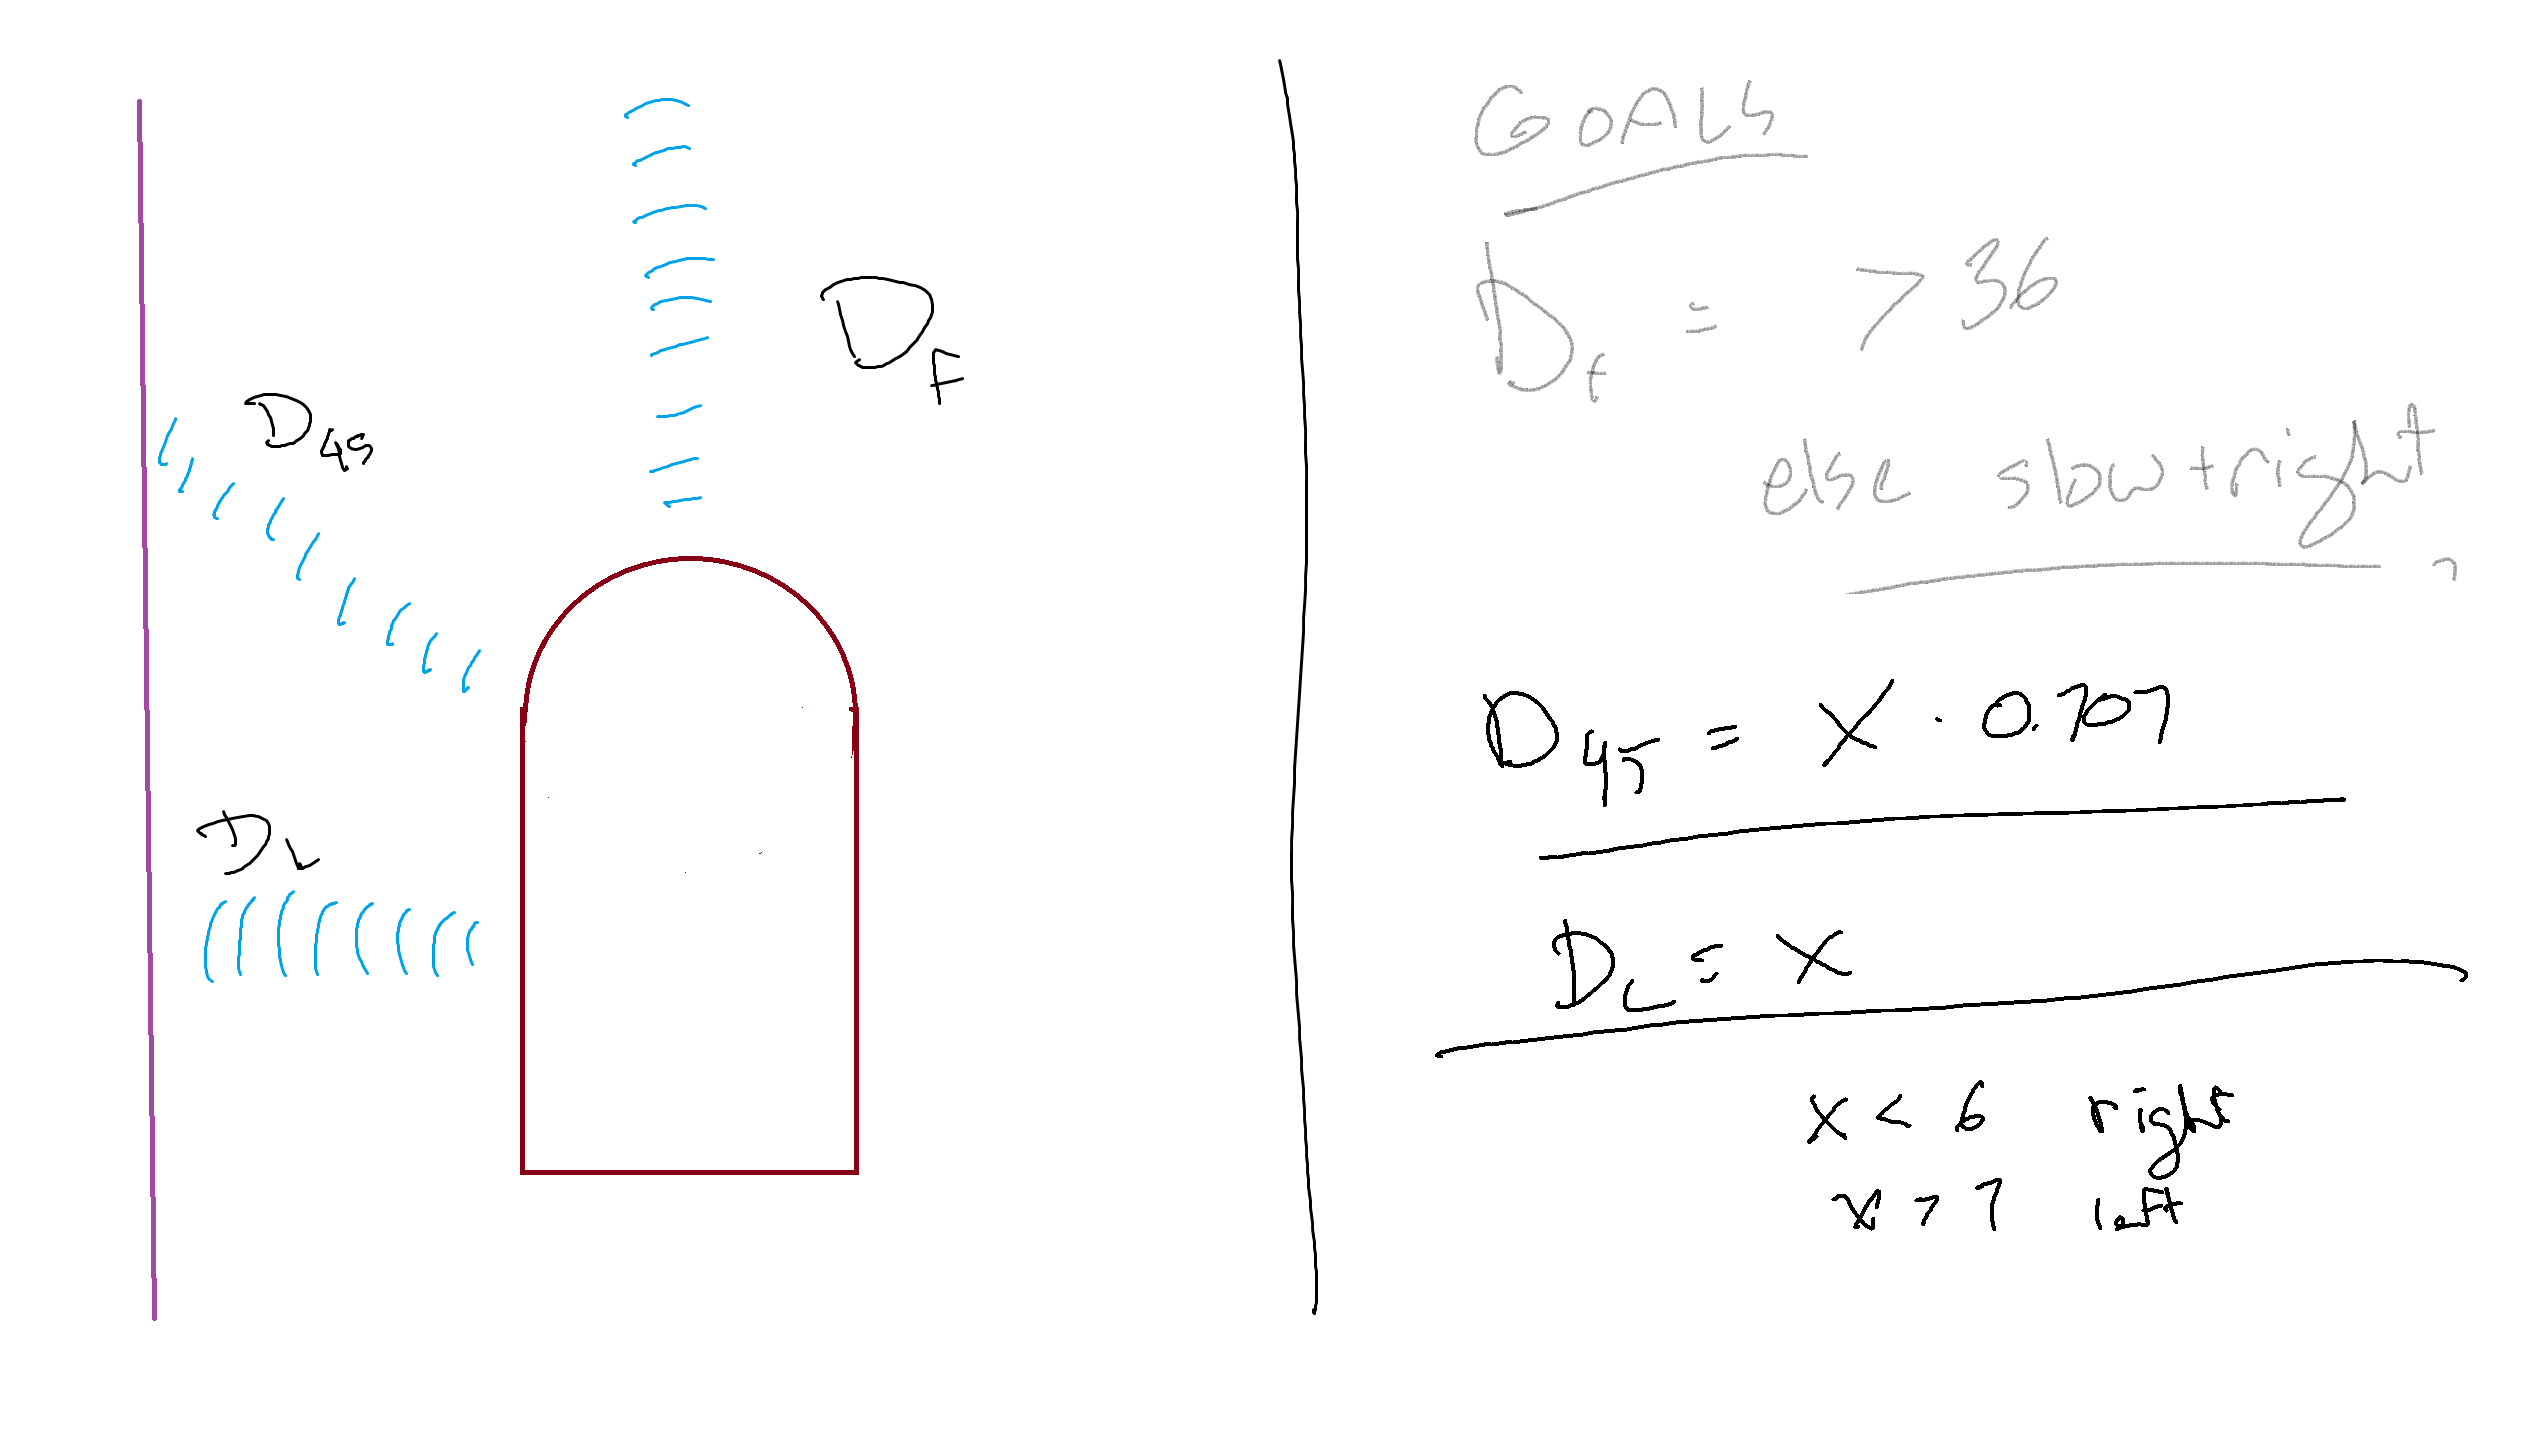 D_F
D_45
D_L
GOALS
D_f = > 36
else slow + right
D_45 = X · 0.707
D_L = X
x < 6 right
x > 7 left